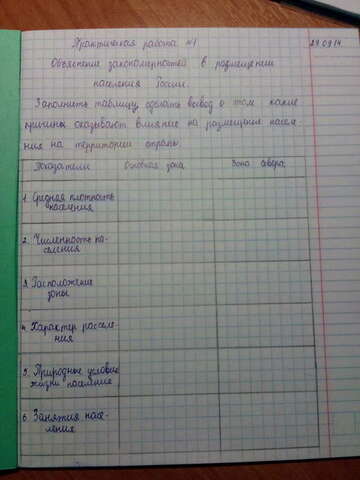 Практическая работа №1
29.09.14
Объяснение закономерностей в размещении
населения России.
Заполнить таблицу, сделать вывод о том какие
причины оказывают влияние на размещение населе-
ния на территории страны.
Показатели Основная зона Зона севера.
1. Средняя плотность
населения
2. Численность на-
селения
3. Расположение
зоны
4. Характер расселе-
ния
5. Природные условия
жизни население
6. Занятия насе-
ление